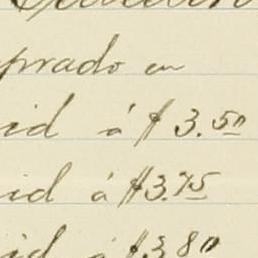 prado en
id á $3.50
id á $3.75
id á $3.80